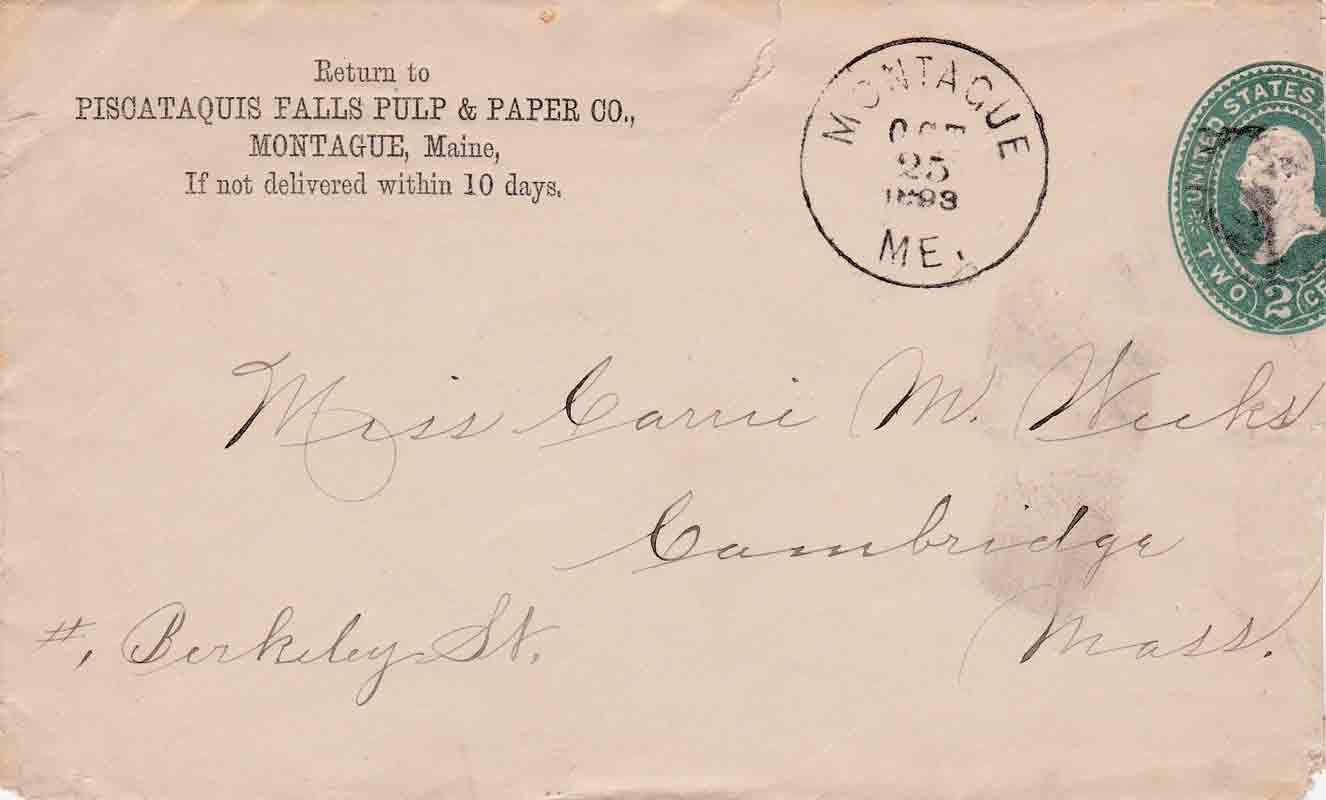 Return to
PISCATAQUIS FALLS PULP & PAPER CO.,
MONTAGUE, Maine,
If not delivered within 10 days.
MONTAGUE
OCT
25
1893
ME.
UNITED STATES
TWO 2 CE
Miss Carrie M. Weeks
Cambridge
#, Berkeley St. Mass.